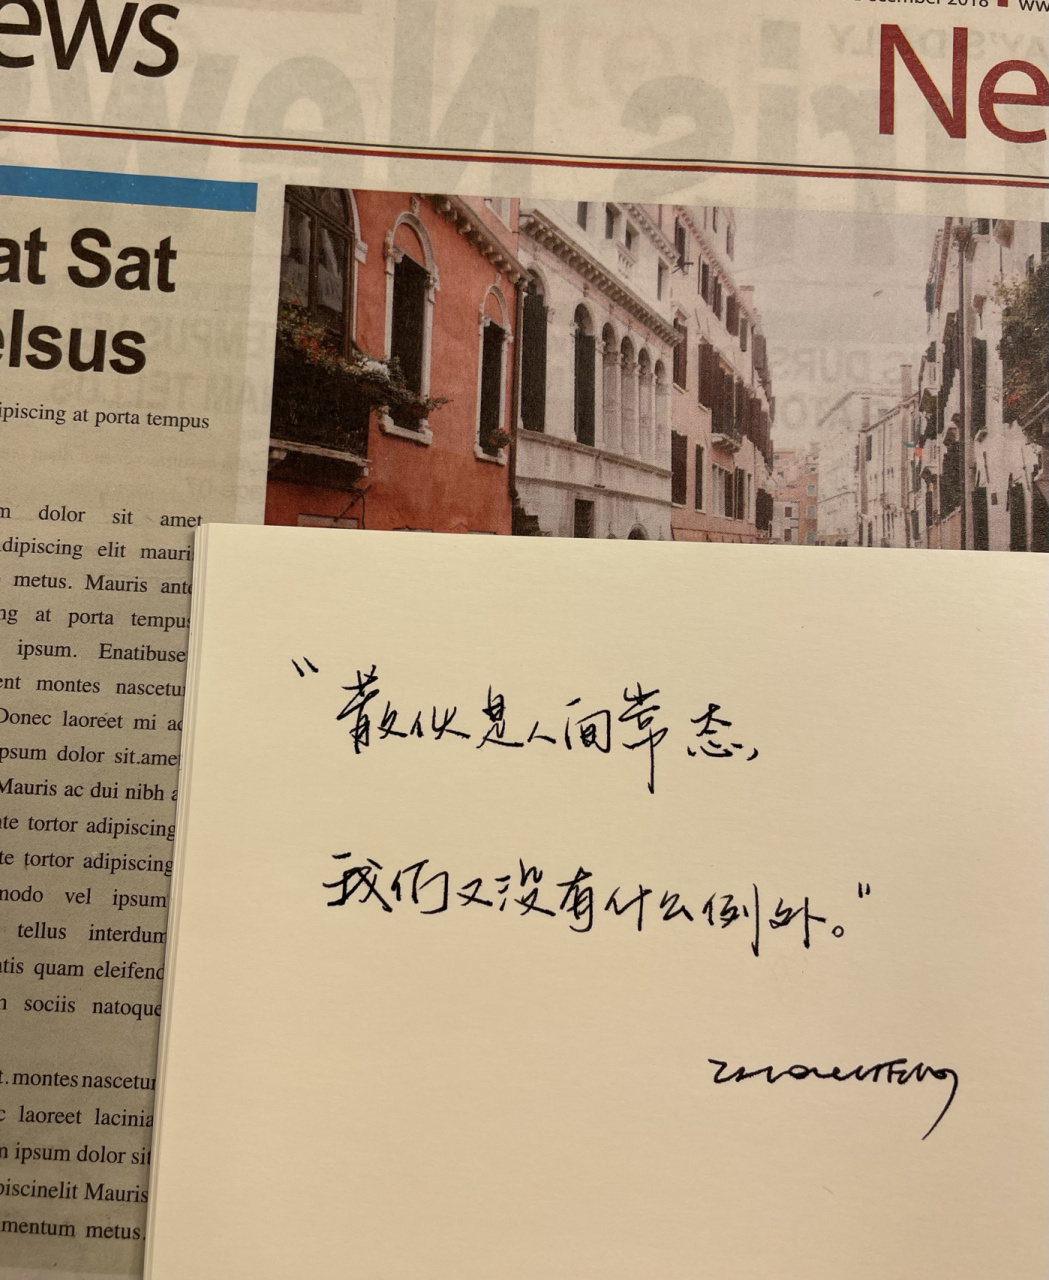 ews
ecember 2018
ww
Ne
at Sat
elsus
ipiscing at porta tempus
m dolor sit amet
dipiscing elit mauri
metus. Mauris ante
ng at porta tempus
ipsum. Enatibuse
ent montes nascetu
Donec laoreet mi ac
psum dolor sit.ame
Mauris ac dui nibh a
te tortor adipiscing
te tortor adipiscing
modo vel ipsum
tellus interdum
tis quam eleifend
m sociis natoque
t. montes nascetur
c laoreet lacinia
m ipsum dolor sit
piscinelit Mauris
mentum metus.
“散伙是人间常态，
我们又没有什么例外。”